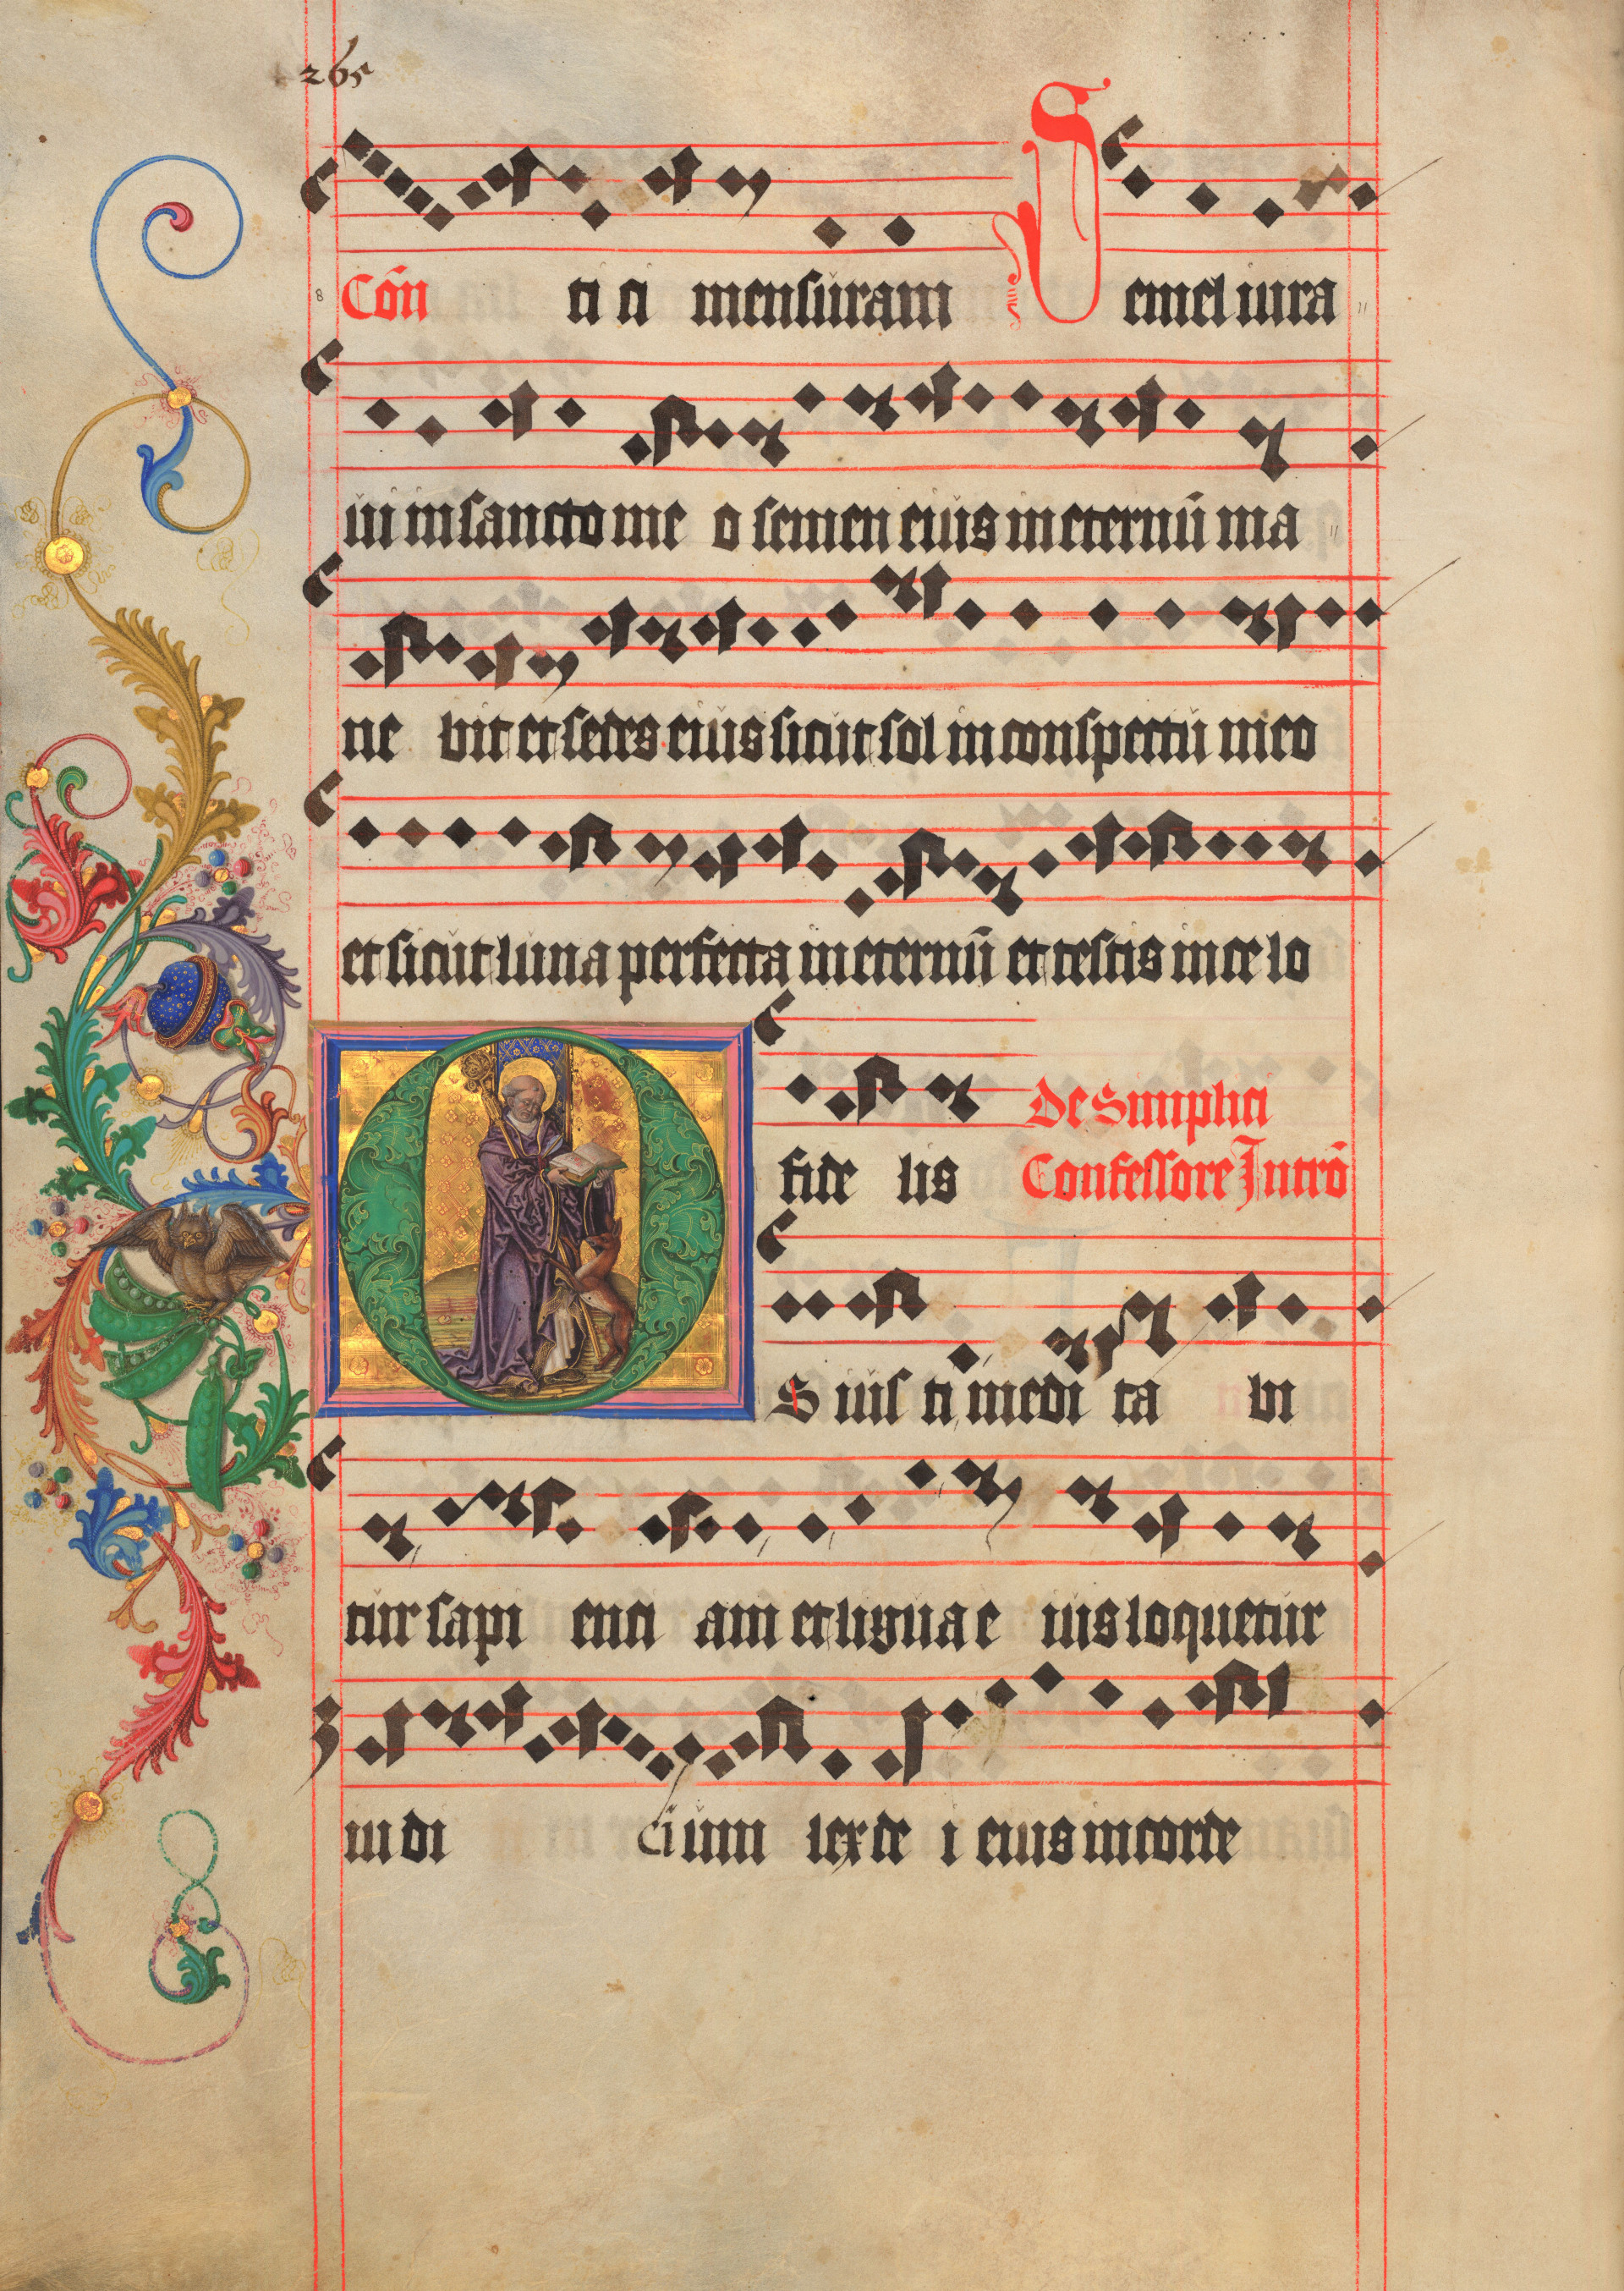 265
Cōn ti ci mensuram Semel iura
ui in sancto me o semen eius in eternū ma
ne bit et sedes eius sicut sol in conspectu meo
et sicut luna perfecta in eternū et testis in ce lo
fide lis De Simplici
Confessore Introˉ
OS ius ti medi ta bi
tur sapi enci am et ligua e ius loquetur
iu di cium lex de i eius in corde